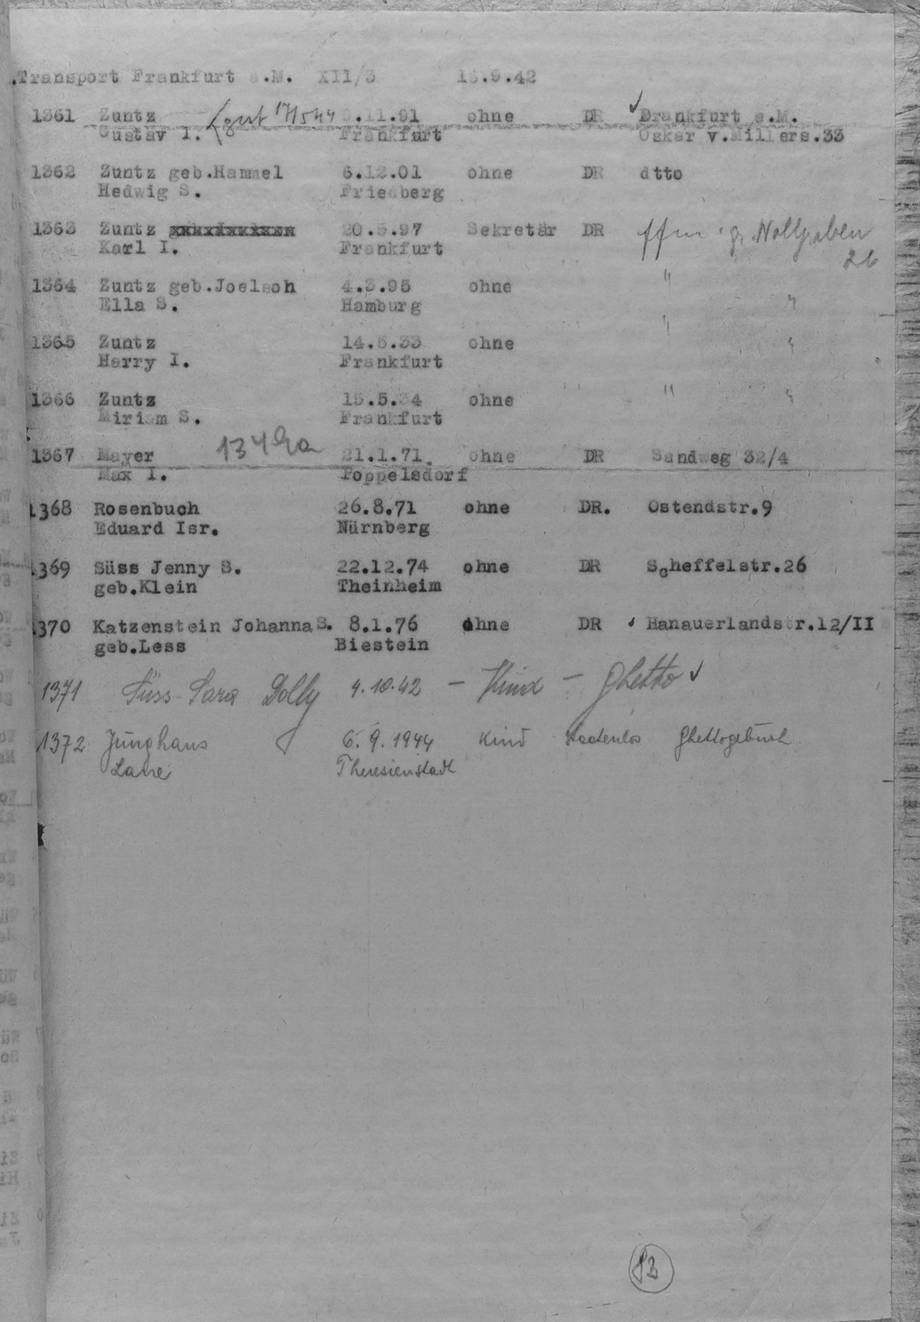 Transport Frankfurt a.M. XII/3 15.9.42
1361 Zuntz .11.91 ohne DR Frankfurt a.M.
Gustav I. Frankfurt Oskar v.Millers.33
1362 Zuntz geb.Hammel 6.12.01 ohne DR dtto
Hedwig S. Friedberg
1363 Zuntz 20.5.97 Sekretär DR ffm
Karl I. Frankfurt 26
1364 Zuntz geb.Joelsoh 4.3.95 ohne " "
Ella S. Hamburg
1365 Zuntz 14.5.33 ohne " "
Harry I. Frankfurt
1366 Zuntz 15.5.34 ohne " "
Miriam S. Frankfurt
1367 Mayer 1349a 21.1.71. ohne DR Sandweg 32/4
Max I. Poppelsdorf
1368 Rosenbuch 26.8.71 ohne DR. Ostendstr.9
Eduard Isr. Nürnberg
369 Süss Jenny S. 22.12.74 ohne DR Scheffelstr.26
geb.Klein Theinheim
370 Katzenstein Johanna S. 8.1.76 ohne DR Hanauerlandstr.12/II
geb.Less Biestein
1371 Süss Sara Dolly 4.10.42 – Kind – Ghetto
1372 Junghaus 6.9.1944 Kind staatenlos
Theresienstadt